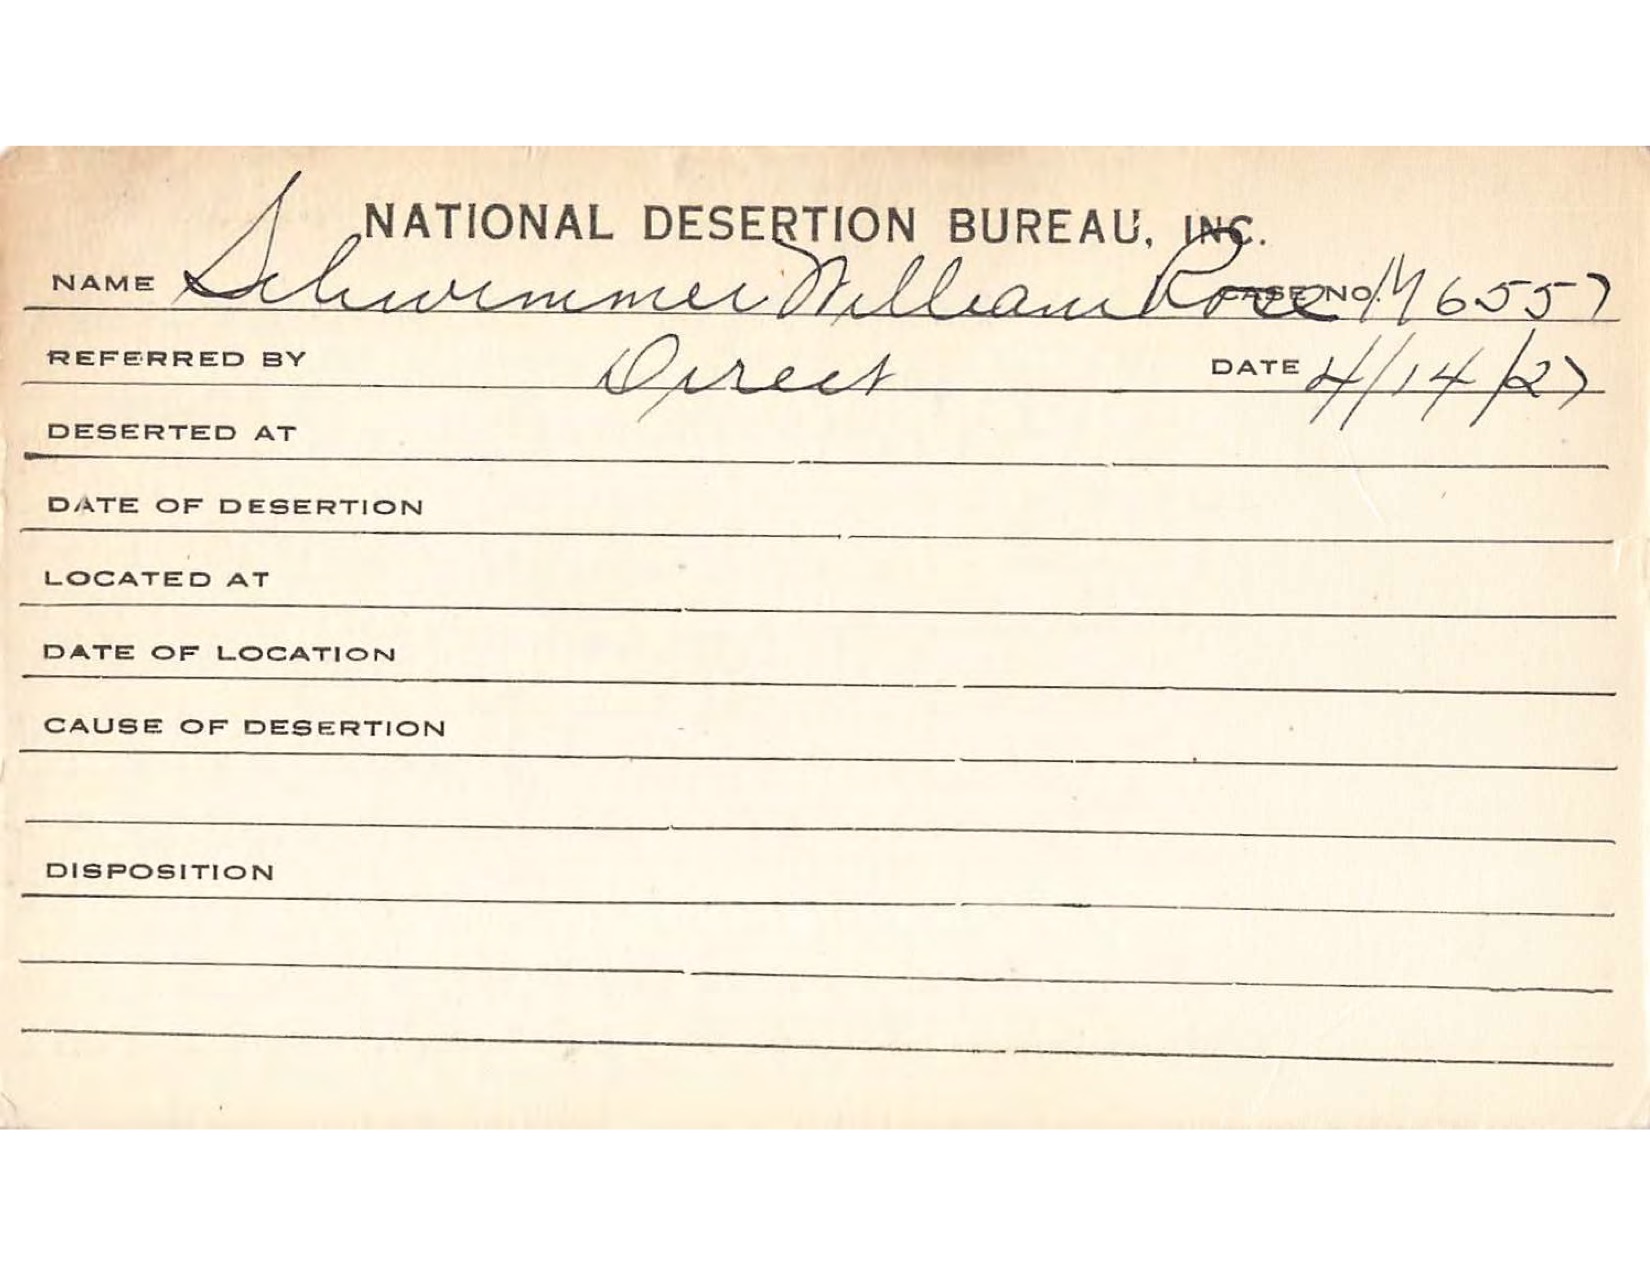 NATIONAL DESERTION BUREAU, INC.
NAME Schwimmer William Rose CASE NO. M 6557
REFERRED BY Direct DATE 4/14/27
DESERTED AT
DATE OF DESERTION
LOCATED AT
DATE OF LOCATION
CAUSE OF DESERTION
DISPOSITION